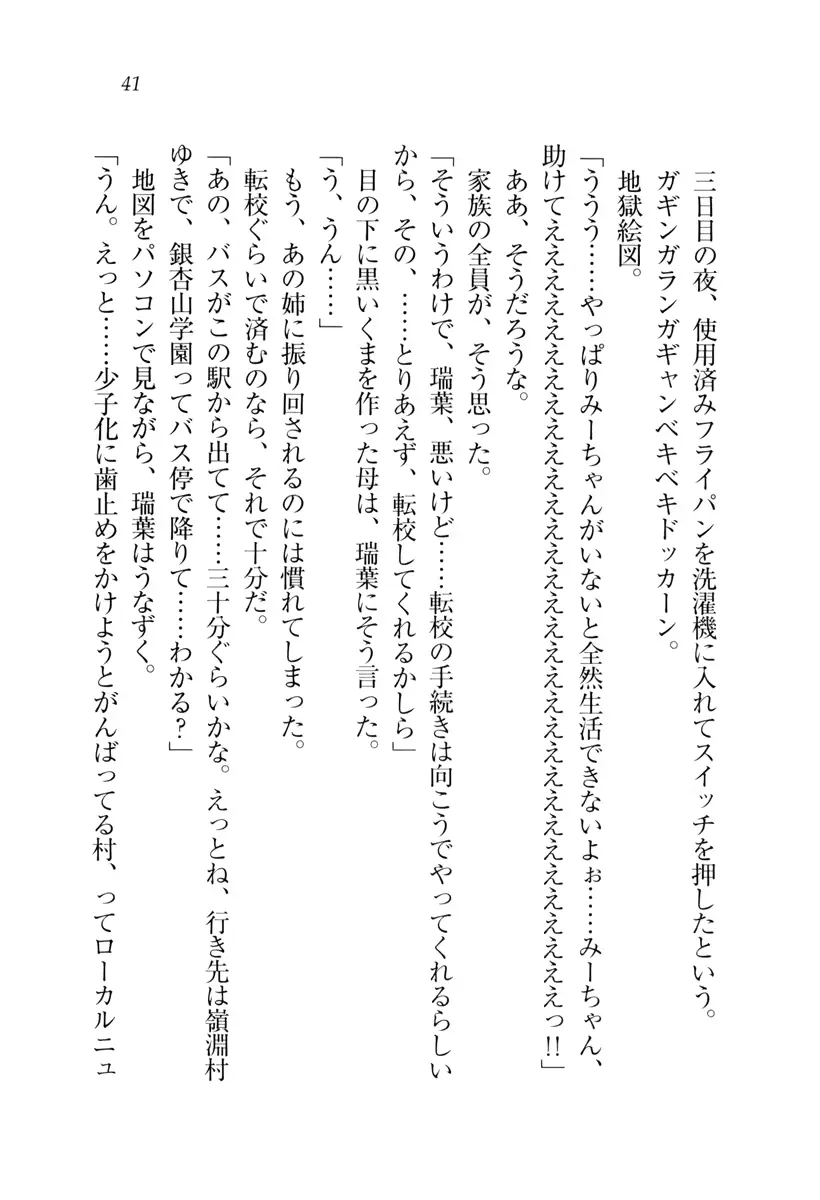 41
三日目の夜、使用済みフライパンを洗濯機に入れてスイッチを押したという。
ガギンガランガギャンベキベキドッカーン。
地獄絵図。
「ううう……やっぱりみーちゃんがいないと全然生活できないよぉ……みーちゃん、
助けてえええええええええええええええええええええええええええええええっ!!」
ああ、そうだろうな。
家族の全員が、そう思った。
「そういうわけで、瑞葉、悪いけど……転校の手続きは向こうでやってくれるらしい
から、その、……とりあえず、転校してくれるかしら」
目の下に黒いくまを作った母は、瑞葉にそう言った。
「う、うん……」
もう、あの姉に振り回されるのには慣れてしまった。
転校ぐらいで済むのなら、それで十分だ。
「あの、バスがこの駅から出てて……三十分ぐらいかな。えっとね、行き先は嶺淵村
ゆきで、銀杏山学園ってバス停で降りて……わかる?」
地図をパソコンで見ながら、瑞葉はうなずく。
「うん。えっと……少子化に歯止めをかけようとがんばってる村、ってローカルニュ